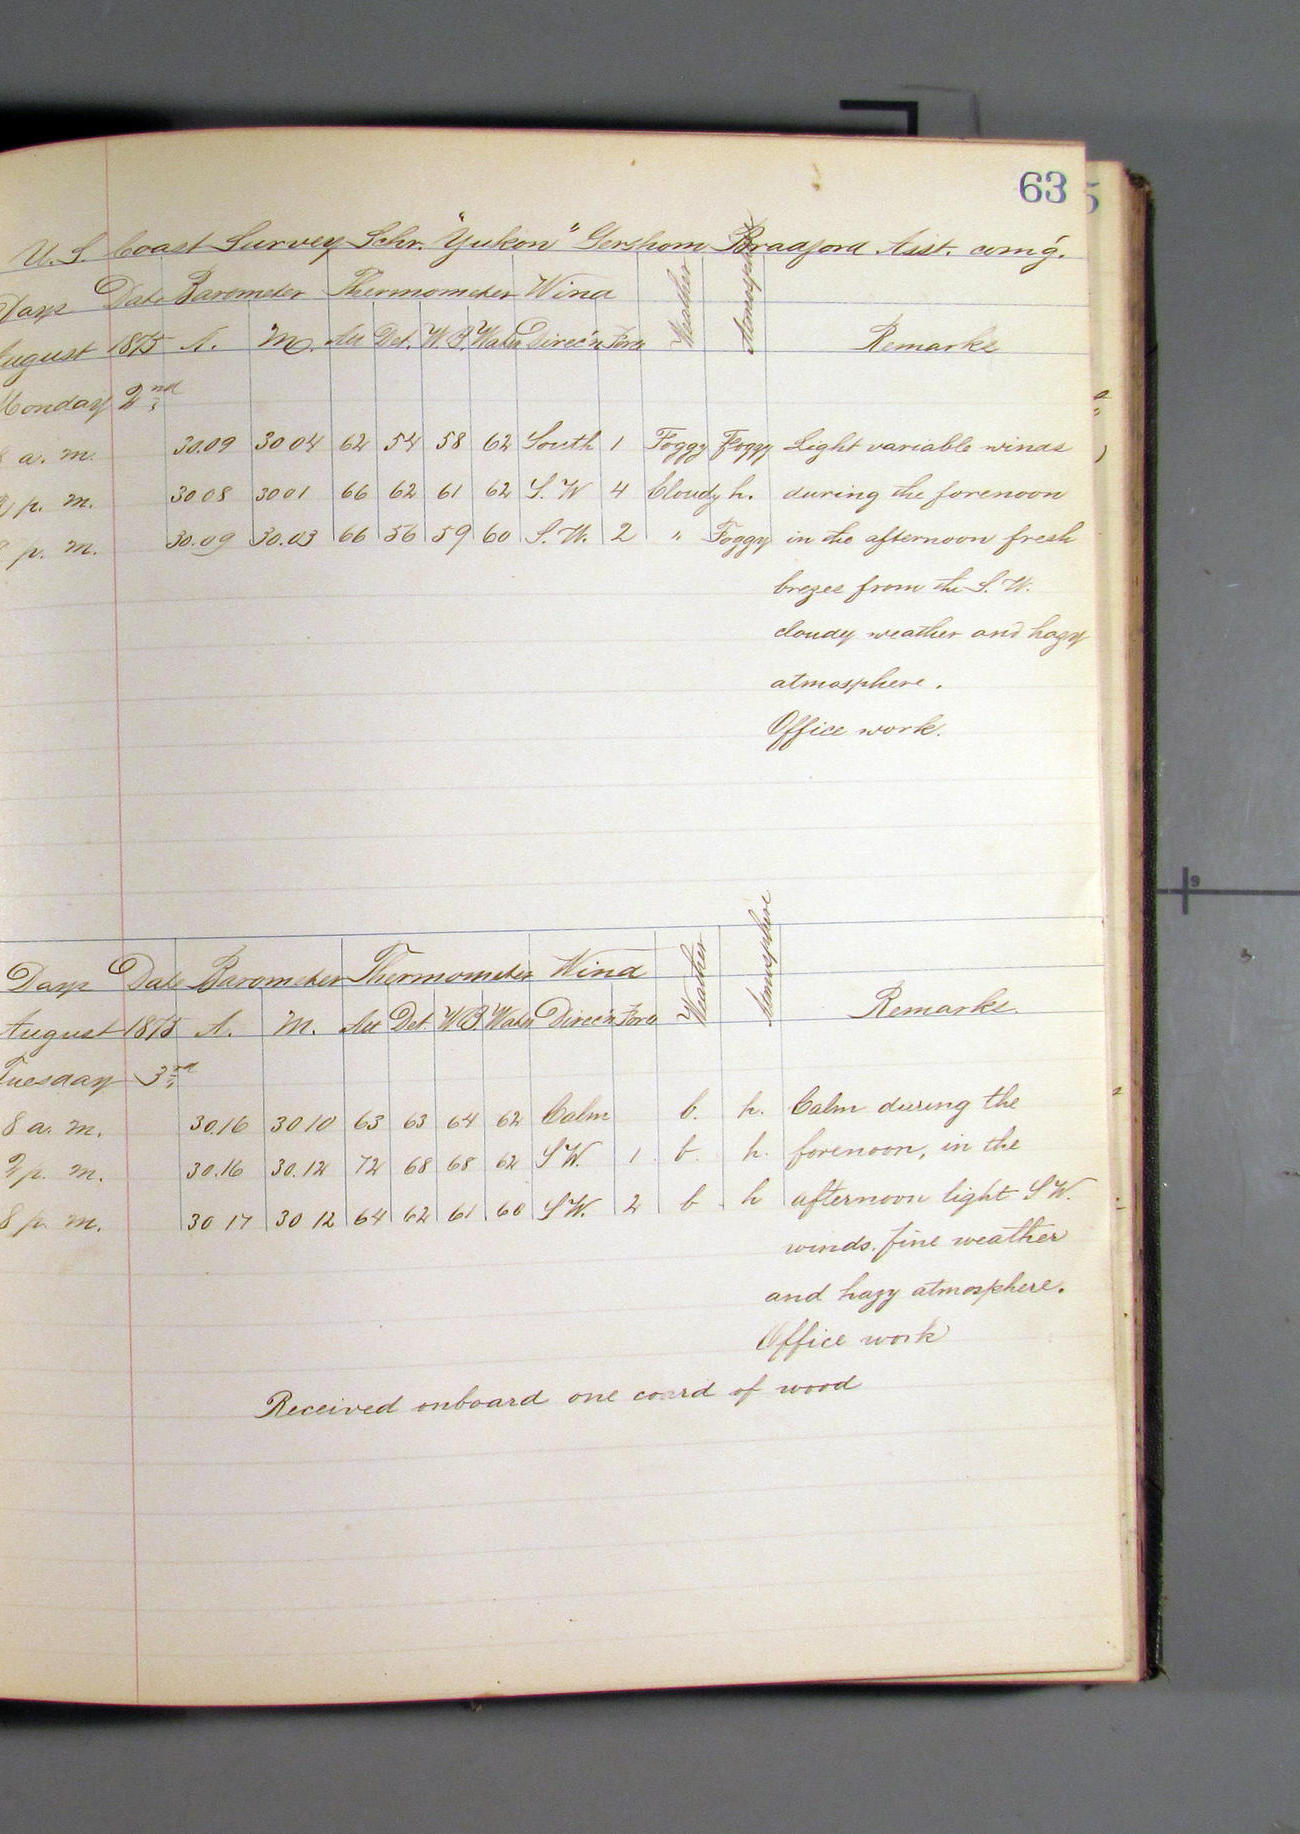 63
5
U.S. Coast Survey Schr. "Yukon" Gershom Bradford Asst. comg.
Days Date Barometer Thermometer Wind Weather Atmosphere Remarks
August 1875 A. M. Att Det. W.B. Water Direc'n Force
Monday 2nd
8 a. m. 30.09 30 04 62 54 58 62 South 1 Foggy Foggy Light variable winds
2 p. m. 30 08 30 01 66 62 61 62 S. W 4 Cloudy h. during the forenoon
8 p. m. 30.09 30.03 66 56 59 60 S. W. 2 " Foggy in the afternoon fresh
brezes from the S. W.
cloudy weather and hazy
atmosphere.
Office work.
Days Date Barometer Thermometer Wind Weather Atmosphere Remarks.
August 1875 A. M. Att Det. W.B Water Direc'n Force
Tuesday 3rd
8 a. m. 30.16 30 10 63 63 64 62 Calm b. h. Calm during the
2 p. m. 30.16 30.12 72 68 68 62 SW. 1 b h. forenoon, in the
8 p. m. 30 17 30 12 64 62 61 60 SW. 2 b h afternoon light SW.
winds. fine weather
and hazy atmosphere.
Office work
Received onboard one coard of wood